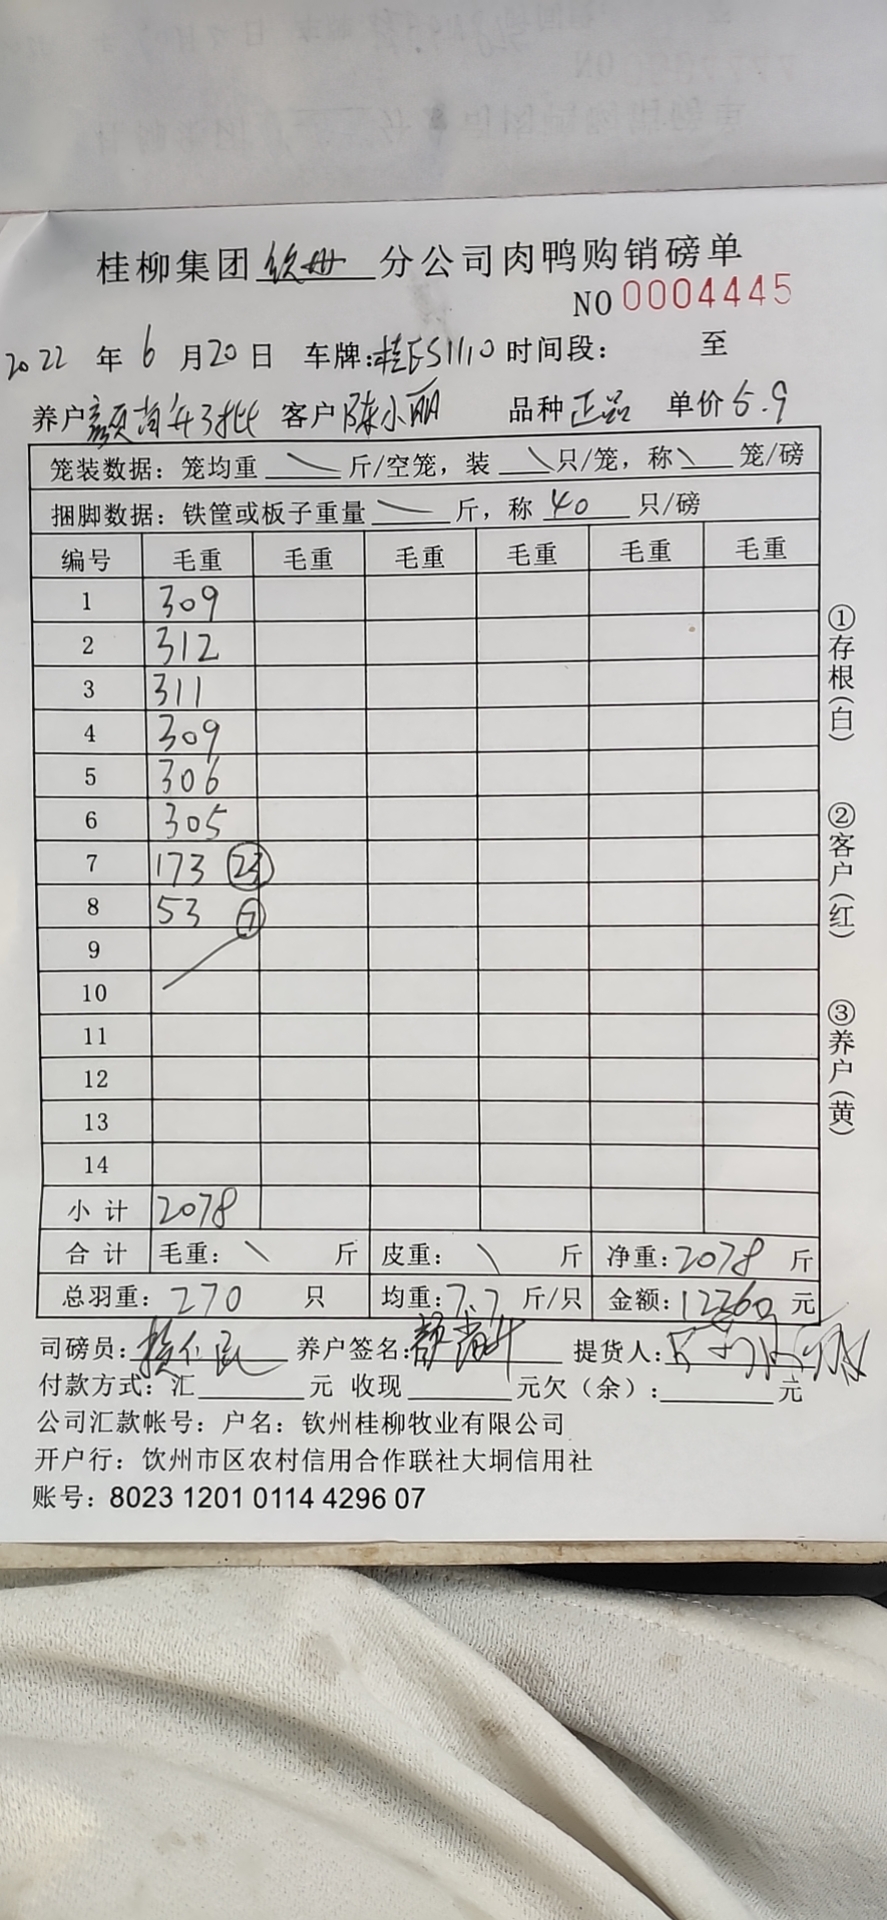 桂柳集团钦州分公司肉鸭购销磅单
NO 0004445
2022 年 6 月 20 日 车牌:桂ES1110 时间段: 至
养户 颜尚升3批 客户 陈小丽 品种 正品 单价 5.9
笼装数据: 笼均重 \ 斤/空笼, 装 \ 只/笼, 称 \ 笼/磅
捆脚数据: 铁筐或板子重量 \ 斤, 称 40 只/磅
编号 毛重 毛重 毛重 毛重 毛重 毛重
1 309
2 312
3 311
4 309
5 306
6 305
7 173 23
8 53 7
9
10
11
12
13
14
小计 2078
合计 毛重: \ 斤 皮重: \ 斤 净重: 2078 斤
总羽重: 270 只 均重: 7.7 斤/只 金额: 12260 元
司磅员: 养户签名: 颜尚升 提货人:
付款方式: 汇 元 收现 元欠(余): 元
公司汇款帐号: 户名: 钦州桂柳牧业有限公司
开户行: 饮州市区农村信用合作联社大垌信用社
账号: 8023 1201 0114 4296 07
①存根(白)
②客户(红)
③养户(黄)